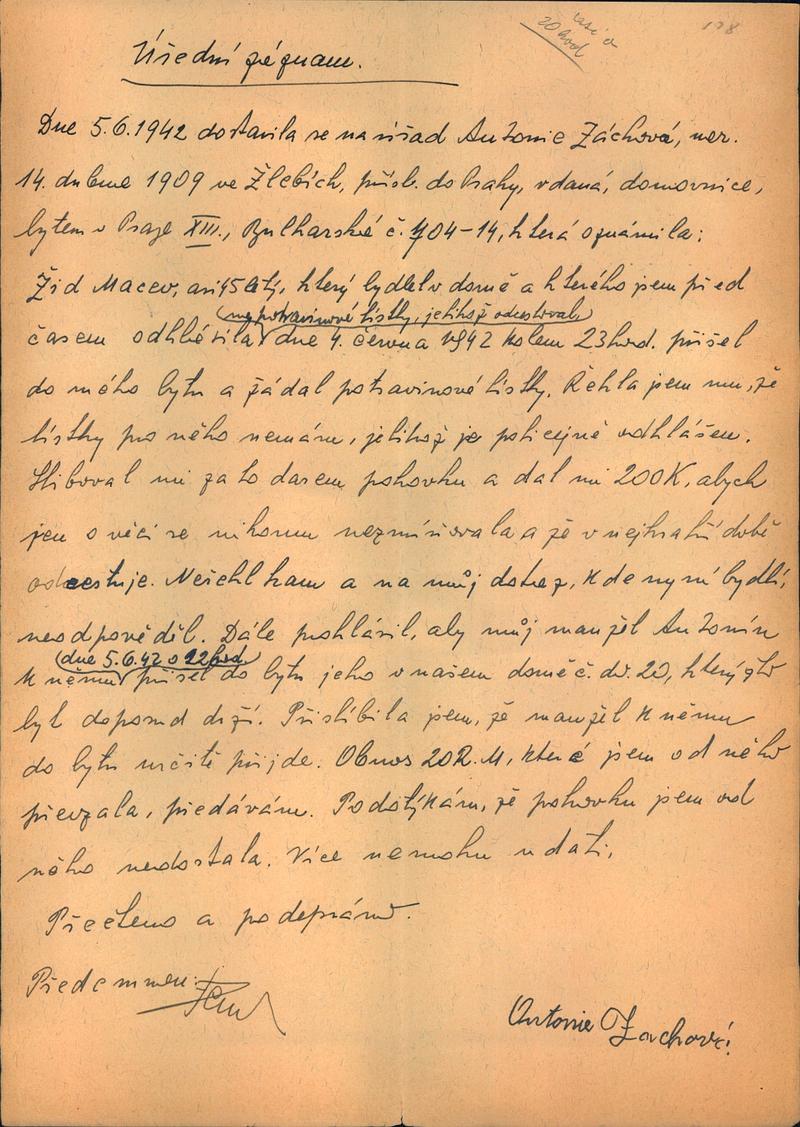 20 hod
178
Úřední záznam.
Dne 5.6.1942 dostavila se na úřad Antonie Záchová, nar.
14. dubna 1909 ve Žlebích, přísl. do Prahy, vdaná, domovnice,
bytem v Praze XIII., Bulharské č. 704-14, která oznámila:
Žid Macev, asi 45 letý, který bydlel v domě a kterého jsem před
(mu potravinové lístky, jelikož odcestoval)
časem odhlásila dne 4. června 1942 kolem 23 hod. přišel
do mého bytu a žádal potravinové lístky. Řekla jsem mu, že
lístky pro něho nemám, jelikož je policejně odhlášen.
Sliboval mi za to darem pohovku a dal mi 200K, abych
jen o věci se nikomu nezmiňovala a že v nejkratší době
odcestuje. Neřekl kam a na můj dotaz, kde nyní bydlí,
neodpověděl. Dále prohlásil, aby můj manžel Antonín
(dne 5.6.42 o 22 hod.)
k němu přišel do bytu jeho v našem domě č. dv. 20, který
byl doposud drží. Přislíbila jsem, že manžel k němu
do bytu určitě přijde. Obnos 20R.M, které jsem od něho
převzala, předávám. Podotýkám, že pohovku jsem od
něho nedostala. Více nemohu udati.
Přečteno a podepsáno.
Přede mnou:
Antonie Zachová!